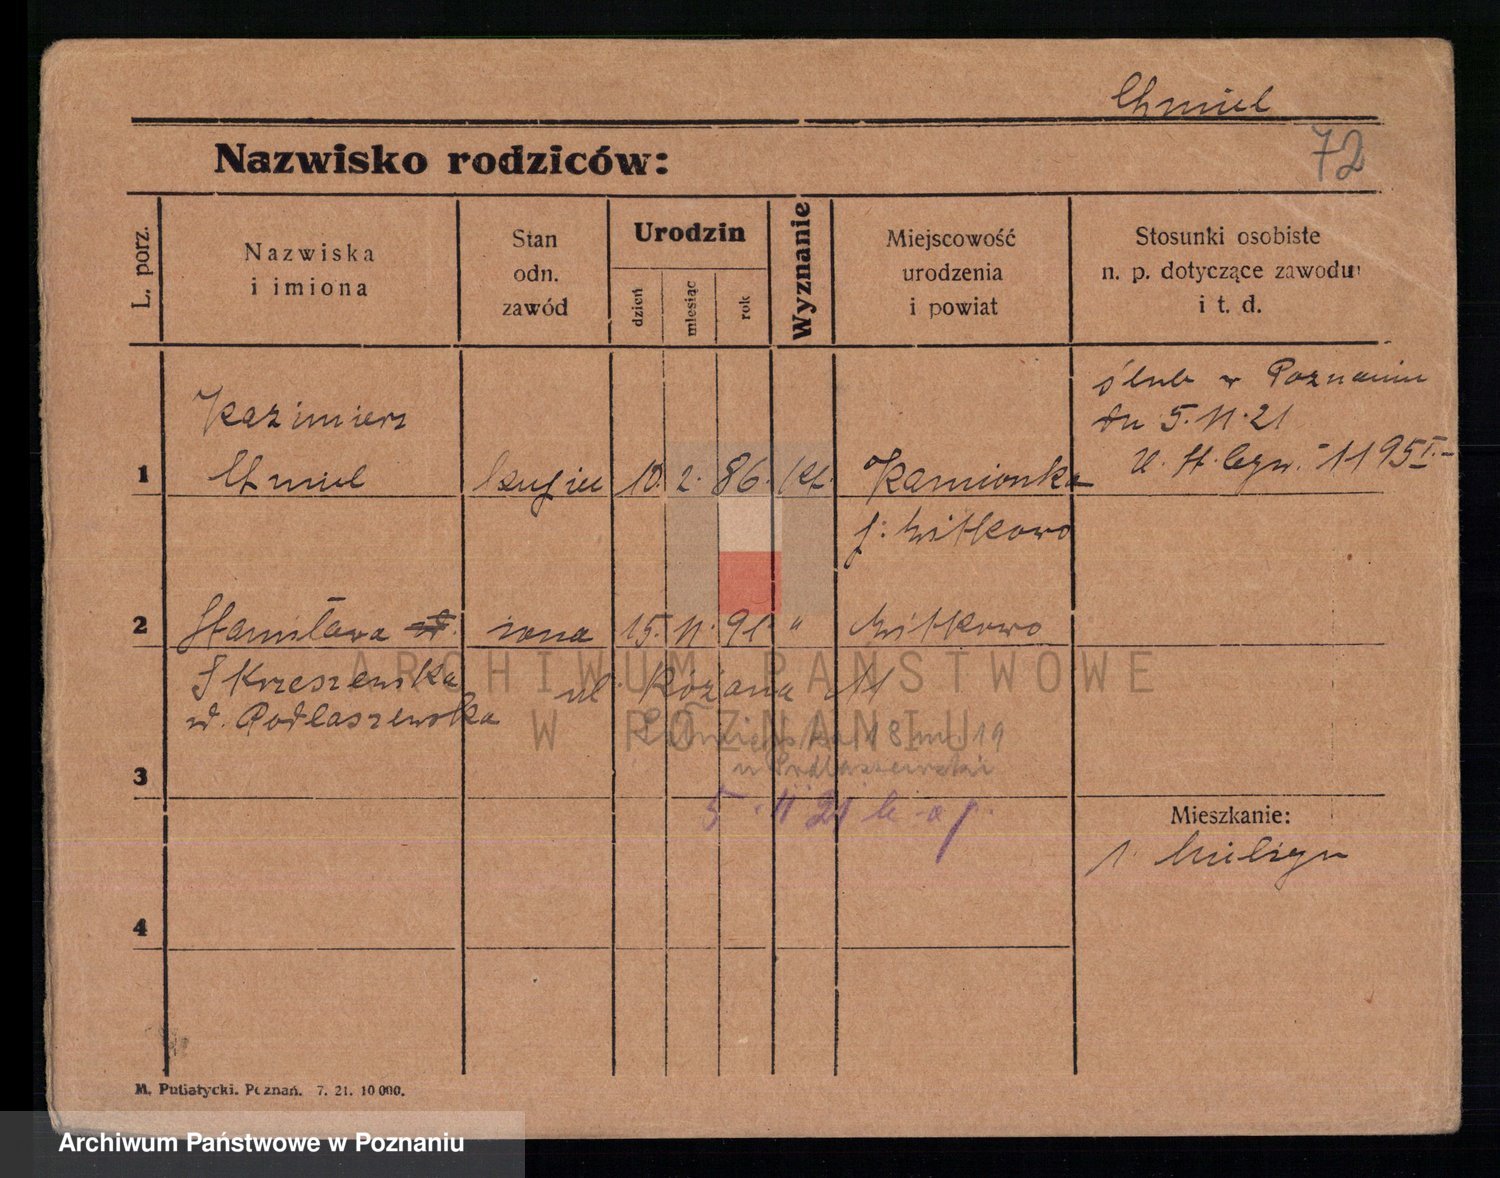 Chmiel
72
Nazwisko rodziców:
L. porz.
Nazwiska
i imiona
Stan
odn.
zawód
Urodzin
dzień
miesiąc
rok
Wyznanie
Miejscowość
urodzenia
i powiat
Stosunki osobiste
n. p. dotyczące zawodu
i t. d.
ślub w Poznaniu
dn 5.11.21
Kazimierz
1 Chmiel kupiec 10. 2. 86. kt. Kamionka
p: Witkowo
2 Stanisława żona 15. 11. 91. " Witkowo
Skrzeszewska
w. Podlaszewska
ul. Różana 11
18 m 19
u Podlaszewski
3
5. 11 21
Mieszkanie:
4
M. Putiatycki. Poznań. 7. 21. 10 000.
ARCHIWUM PAŃSTWOWE
W POZNANIU
Archiwum Państwowe w Poznaniu